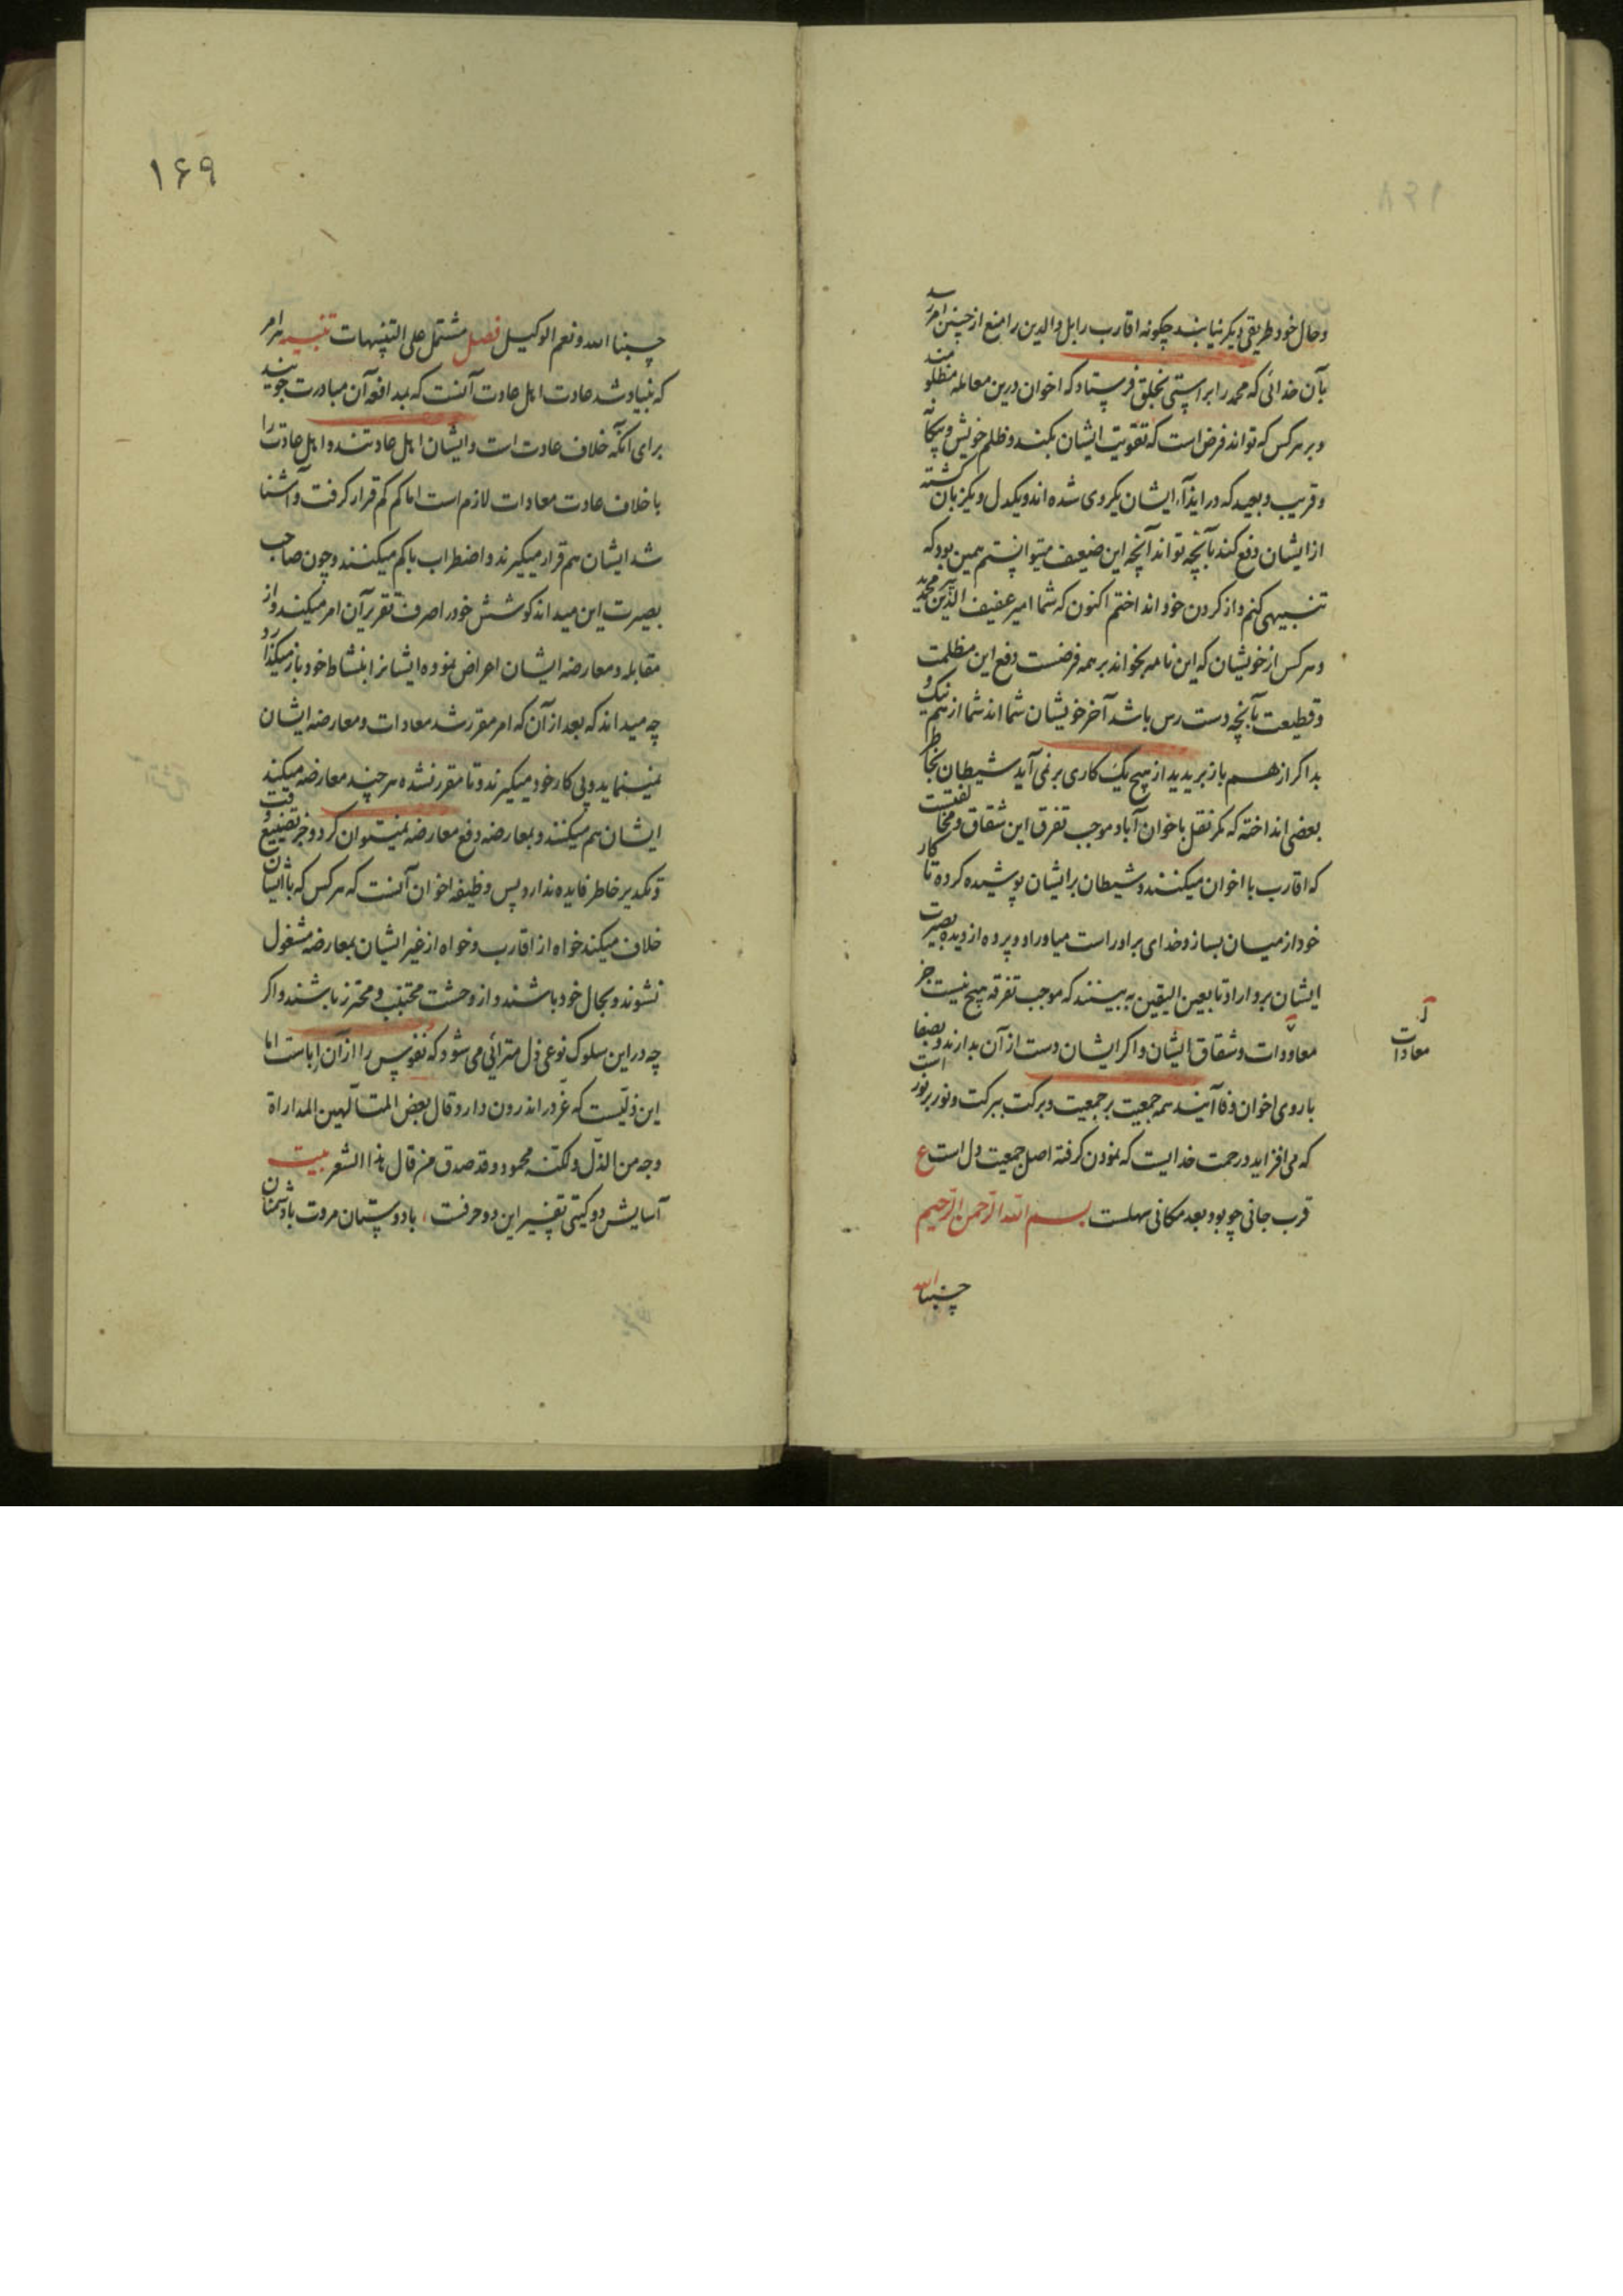 وحال خود طریقی دیکر نیابند چکونه اقارب را بل والدین را منع از چنین امر رسد
بآن خدائی که محمد را براستی بخلق فرستاد که اخوان درین معامله مظلومند
وبر هرکس که تواند فرض است که تقویت ایشان بکند وظلم خویش وبیکانه
وقریب وبعید که در ایذآء ایشان یکروی شده اند ویکدل ویکزبان کشته
از ایشان دفع کند بآنچه تواند آنچه این ضعیف میتوانستم همین بود که
تنبیهی کنم واز کردن خود انداختم اکنون که شما امیر عفیف الدین محمدید
وهرکس از خویشان که این نامه بخواند بر همه فرضست دفع این مظلمت
وقطیعت بآنچه دست رس باشد آخر خویشان شما اند شما از هم نیک و
بد اکر از هم باز برید از هیچ یک کاری بر نمی آید شیطان بخاطر
بعضی انداخته که مکر نقل باخوان آباد موجب تفرق این شقاق ومخالفتست
که اقارب با اخوان میکنند وشیطان بر ایشان پوشیده کرده تا کار
خود از میان بسازد وخدای برادر راست میاوراد وپرده از دیده بصیرت
ایشان برداراد تا بعین الیقین به بینند که موجب تفرقه هیچ نیست جز
معاودات وشقاق ایشان واکر ایشان دست از آن بدارند وبصفا
با روی اخوان وفا آیند همه جمعیت بر جمعیت وبرکت ببرکت ونور بر نور است
که می افزاید در رحمت خدایست که نمودن کرفته اصل جمعیت دل است ع
قرب جانی چو بود بعد مکانی سهلست بسم الله الرحمن الرحیم
حسبنا الله
معادات
۱۶۹
حسبنا الله ونعم الوکیل فصل مشتمل علی التنبیهات تنبیه هر امر
که بنیاد شد عادت اهل عادت آنست که بمدافعه آن مبادرت جویند
برای آنکه خلاف عادت است وایشان اهل عادتند واهل عادت را
با خلاف عادت معادات لازم است اما کم کم قرار کرفت وآشنا
شد ایشان هم قرار میکیرند واضطراب باکم میکنند وچون صاحب
بصیرت این میداند کوشش خود را صرف تقریر آن امر میکند واز
مقابله ومعارضه ایشان اعراض نموده ایشانرا بنشاط خود باز میکذارد
چه میداند که بعد از آن که امر مقرر شد معادات ومعارضه ایشان
نمینماید وپی کار خود میکیرند وتا مقرر نشده هر چند معارضه میکنید
ایشان هم میکنند وبمعارضه دفع معارضه نمیتوان کرد وجز تضییع وقت
وتکدیر خاطر فایده ندارد پس وظیفه اخوان آنست که هرکس که با ایشان
خلاف میکند خواه از اقارب وخواه از غیر ایشان بمعارضه مشغول
نشوند وبحال خود باشند واز وحشت مجتنب ومحترز باشند واکر
چه در این سلوک نوعی ذل مترائی می شود که نفوس را از آن اباست اما
این ذلیست که عز در اندرون دارد وقال بعض المتألهین المداراة
وجه من الذل ولکنه محمود وقد صدق من قال هذا الشعر بیت
آسایش دو کیتی تفسیر این دو حرفست ، با دوستان مروت با دشمنان